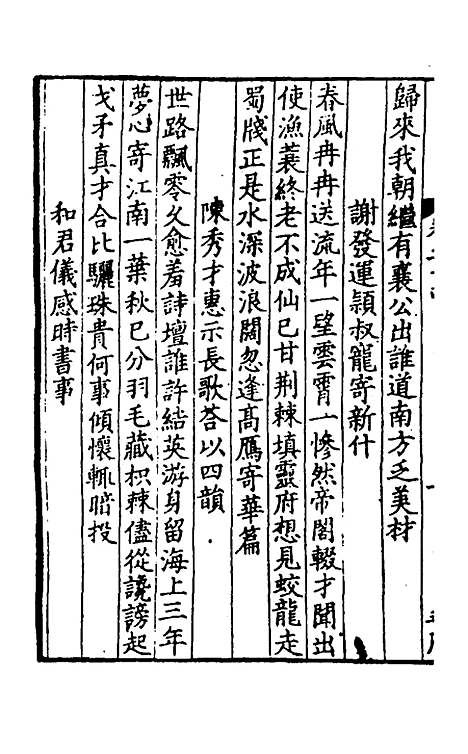 歸來我朝繼有襄公出誰道南方乏美材
謝發運頴叔寵寄新什
春風冉冉送流年一望雲霄一慘然帝閤輟才聞出
使漁蓑終老不成仙已甘荆棘填靈府想見蛟龍走
蜀牋正是水深波浪闊忽逢高鴈寄華篇
陳秀才惠示長歌荅以四韻
世路飄零久愈羞詩壇誰許結英游身留海上三年
夢心寄江南一葉秋已分羽毛藏枳棘儘從讒謗起
戈矛真才合比驪珠貴何事傾懷輒暗投
和君儀感時書事